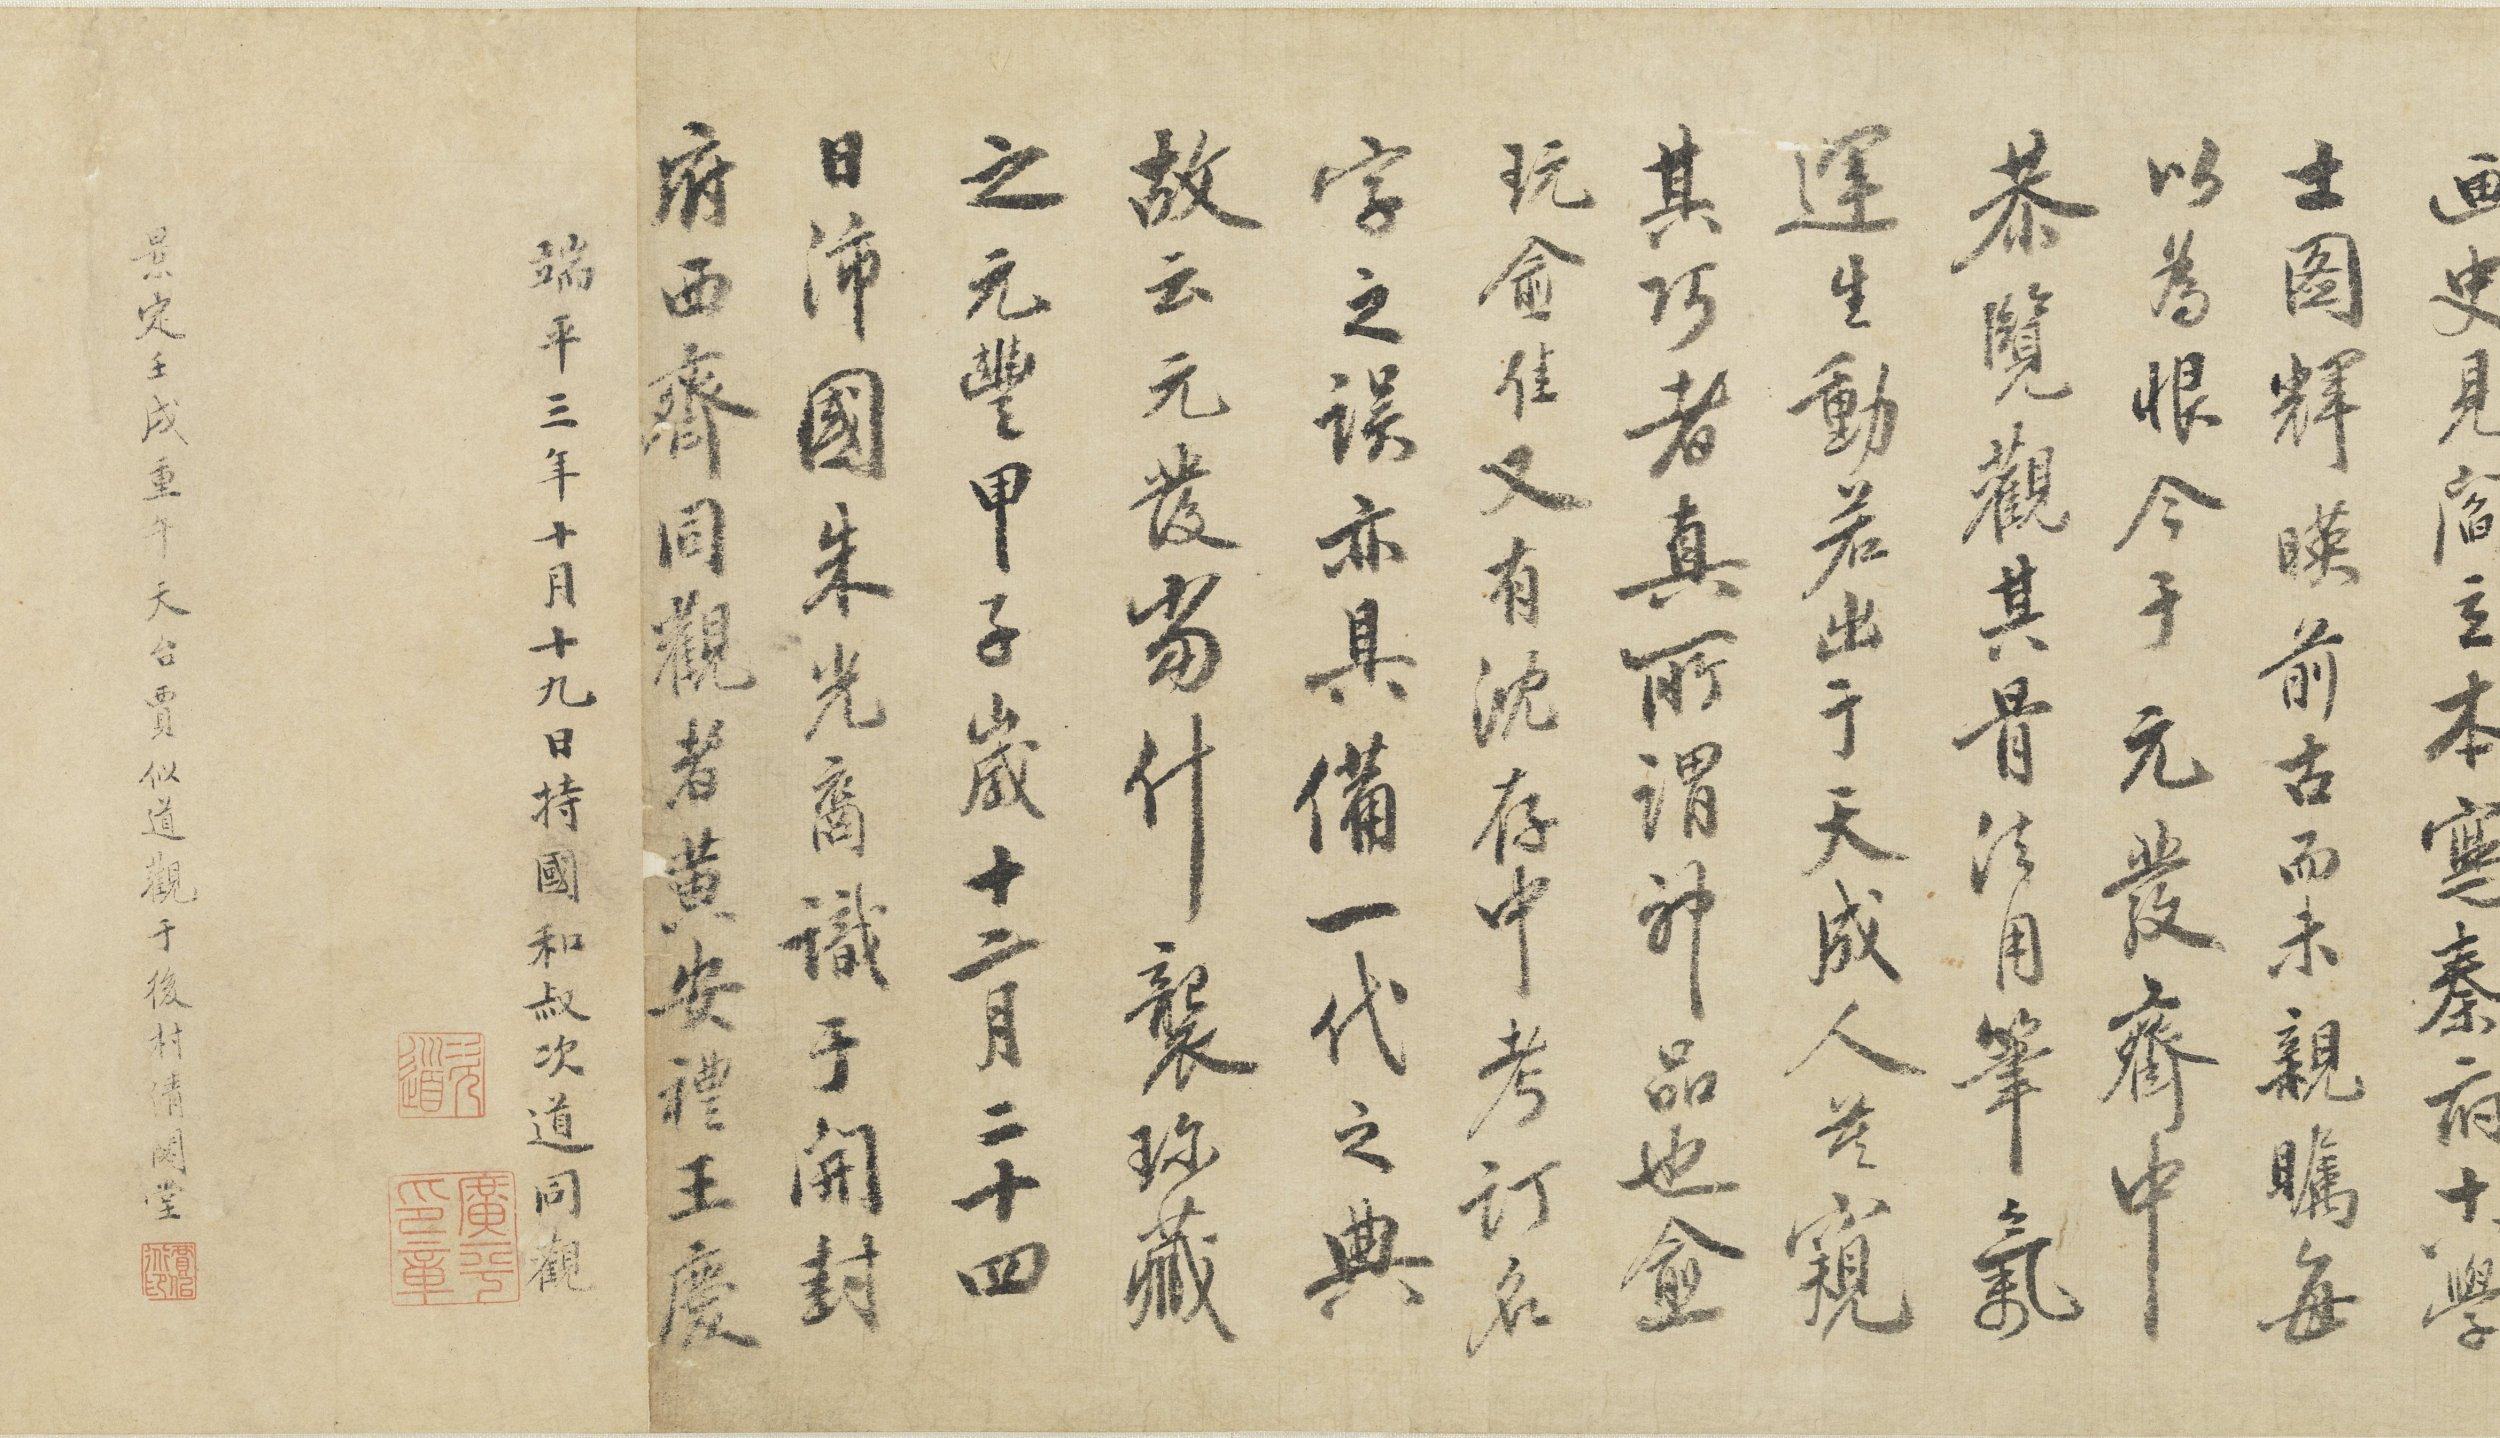 画史見閻立本寫秦府十八學
士图輝暎前古而未親矚每
以為恨今于元發齋中
恭覽觀其骨法用筆氣
運生動若出于天成人莫窺
其巧者真所謂神品也愈
玩愈佳又有沈存中考訂名
字之誤亦具備一代之典
故云元發當什襲珎藏
之元豐甲子歲十二月二十四
日沛國朱光裔識于開封
府西齋同觀者黃安禮王慶
端平三年十月十九日持國和叔次道同觀
景定壬戌重午天台賈似道觀于後村清閟堂
廣平
印章